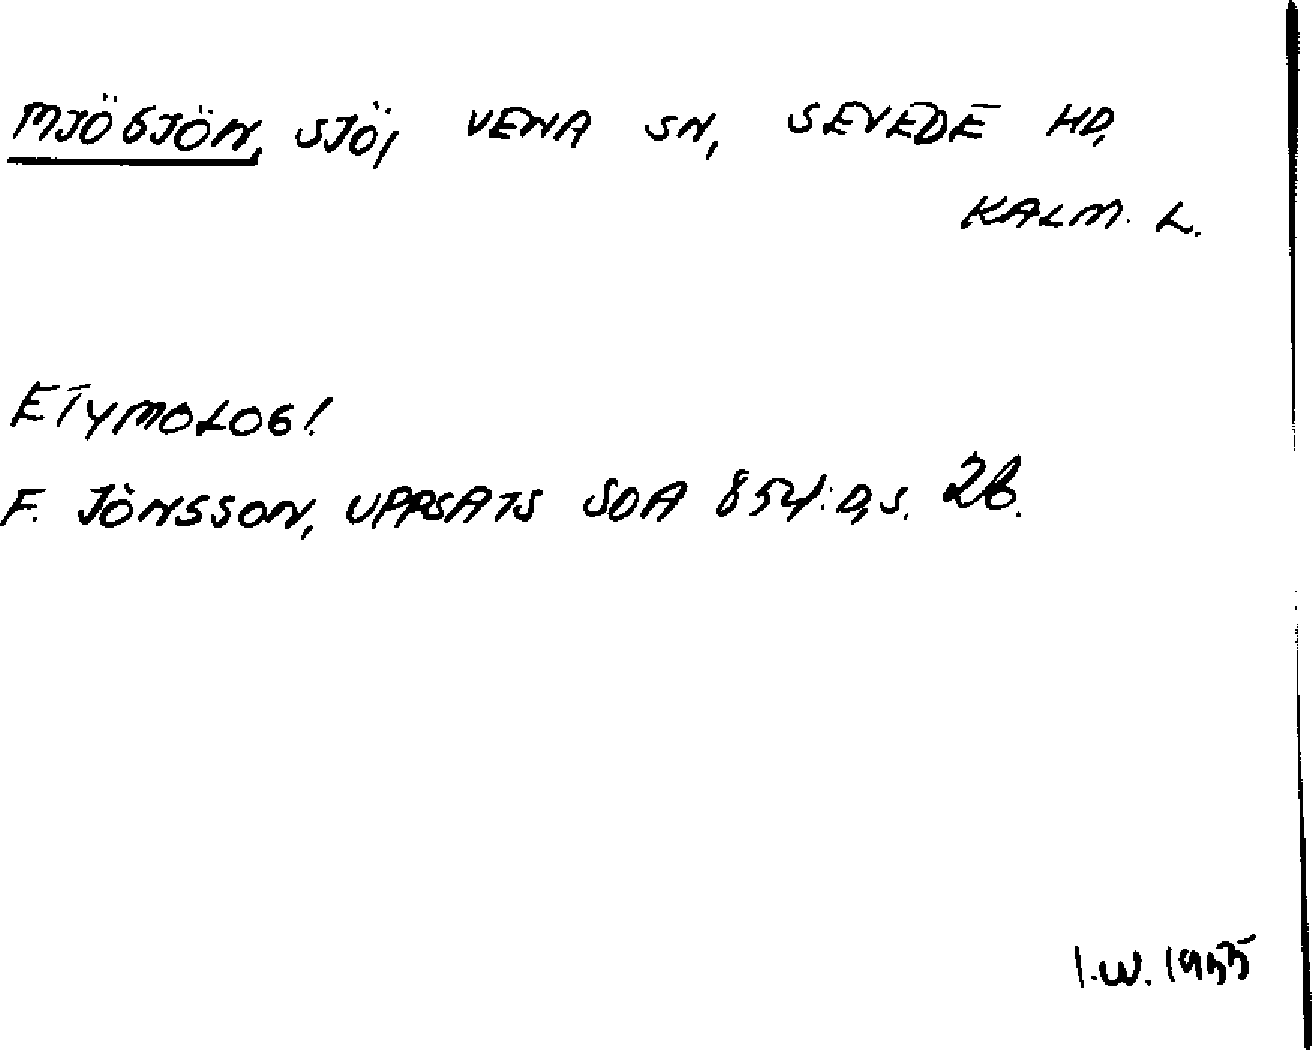 MJÖSJÖN, SJÖ, VENA SN, SEVEDE HD,
KALM. L.
ETYMOLOGI
F. JÖNSSON, UPPSATS SOA 854:D, S. 26.
I.W. 1955